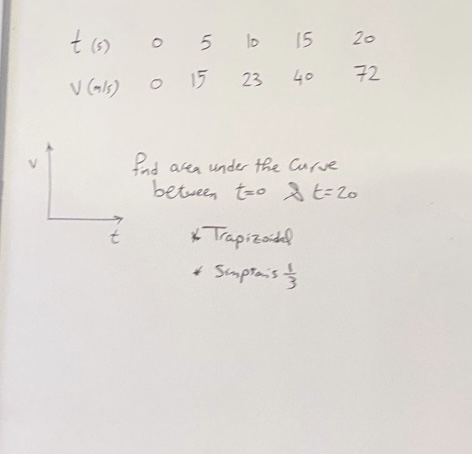 t (s) 0 5 10 15 20
V (m/s) 0 15 23 40 72
V
find area under the Curve
between t=0 & t=20
t
* Trapizoidal
* Simpton's 1/3